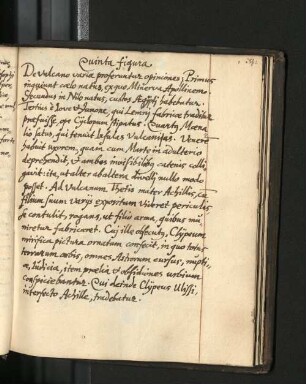 Quinta figura
De Vulcano variæ proferuntur opiniones; Primus
inquiunt cœlo natus, ex quo Minerva Apollinem
Secundus in Nilo natus, custos Ægypti habebatur.
Tertius è Iove et Iunone, qui Lemni fabricæ traditur
præfuisse, ope Cyclopum stipatus. Quartus Mena
lio satus, qui tenuit Insulas Vulcanias. Venerē
habuit uxorem, quam cum Marte in adulterio
deprehendit, et ambos invisibilibus catenis colli
gavit: ita, ut alter ab altero divelli nullo modo
posset. Ad Vulcanum Thetis mater Achillis, cū
filium suum varijs expositum videret periculis
se contulit, rogans, ut filio arma, quibus mu
niretur fabricaret. Cui ille obsecutus, Clypeum
mirifica pictura ornatum confecit, in quo totus
terrarum orbis, omnes Astrorum cursus, nupti-
æ, iudicia, item prælia et obsidiones urbium
conspiciebantur. Qui deinde Clypeus Ulissi,
interfecto Achille, tradebatur.